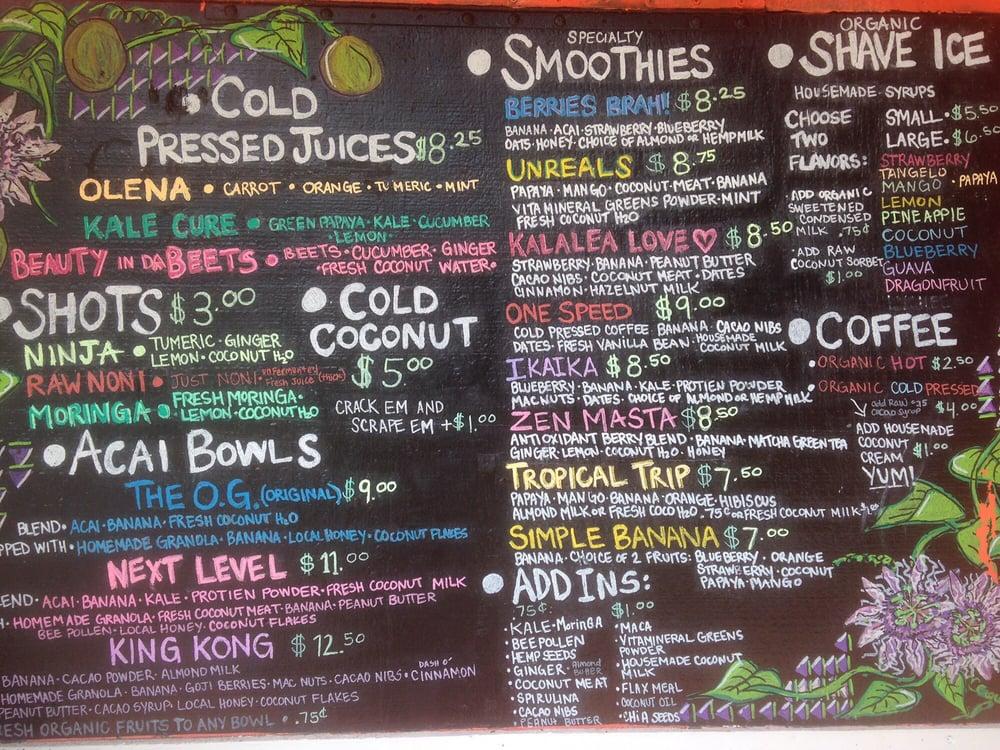 COLD
PRESSED JUICES $8.25
OLENA • CARROT • ORANGE • TUMERIC • MINT
KALE CURE • GREEN PAPAYA • KALE • CUCUMBER
• LEMON •
BEAUTY IN DA BEETS • BEETS • CUCUMBER • GINGER
• FRESH COCONUT WATER •
• SHOTS $3.00
NINJA • TUMERIC • GINGER
LEMON • COCONUT H2O
RAW NONI • JUST NONI • unfermented
Fresh Juice (thick)
MORINGA • FRESH MORINGA •
LEMON • COCONUT H2O
• COLD
COCONUT
$5.00
CRACK EM AND
SCRAPE EM +$1.00
• ACAI BOWLS
THE O.G. (ORIGINAL) $9.00
BLEND • ACAI • BANANA • FRESH COCONUT H2O
PPED WITH • HOMEMADE GRANOLA • BANANA • LOCAL HONEY • COCONUT FLAKES
NEXT LEVEL $11.00
END • ACAI • BANANA • KALE • PROTIEN POWDER • FRESH COCONUT MILK
H • HOMEMADE GRANOLA • FRESH COCONUT MEAT • BANANA • PEANUT BUTTER
BEE POLLEN • LOCAL HONEY • COCONUT FLAKES
KING KONG $12.50
BANANA • CACAO POWDER • ALMOND MILK
HOMEMADE GRANOLA • BANANA • GOJI BERRIES • MAC NUTS • CACAO NIBS • DASH O' CINNAMON
PEANUT BUTTER • CACAO SYRUP • LOCAL HONEY • COCONUT FLAKES
ESH ORGANIC FRUITS TO ANY BOWL • .75¢
SPECIALTY
• SMOOTHIES
BERRIES BRAH!! $8.25
BANANA • ACAI • STRAWBERRY • BLUEBERRY
OATS • HONEY • CHOICE OF ALMOND OR HEMP MILK
UNREALS $8.75
PAPAYA • MANGO • COCONUT • MEAT • BANANA
VITA MINERAL GREENS POWDER • MINT
FRESH COCONUT H2O
KALALEA LOVE ♡ $8.50
STRAWBERRY • BANANA • PEANUT BUTTER
CACAO NIBS • COCONUT MEAT • DATES
CINNAMON • HAZELNUT MILK
ONE SPEED $9.00
COLD PRESSED COFFEE BANANA CACAO NIBS
DATES • FRESH VANILLA BEAN • HOUSEMADE COCONUT MILK
IKAIKA $8.50
BLUEBERRY • BANANA • KALE • PROTIEN POWDER
MAC NUTS • DATES • CHOICE OF ALMOND OR HEMP MILK
ZEN MASTA $8.50
ANTIOXIDANT BERRY BLEND • BANANA • MATCHA GREEN TEA
GINGER • LEMON • COCONUT H2O • HONEY
TROPICAL TRIP $7.50
PAPAYA • MANGO • BANANA • ORANGE • HIBISCUS
ALMOND MILK OR FRESH COCO H2O .75¢ OR FRESH COCONUT MILK $1.00
SIMPLE BANANA $7.00
BANANA • CHOICE OF 2 FRUITS: BLUEBERRY • ORANGE
STRAWBERRY • COCONUT
PAPAYA • MANGO
• ADD INS:
.75¢:
• KALE • MORINGA
• BEE POLLEN
• HEMP SEEDS
• GINGER • Almond BUTTER
• COCONUT MEAT
• SPIRULINA
• CACAO NIBS
• PEANUT BUTTER
$1.00
• MACA
• VITAMINERAL GREENS
POWDER
• HOUSEMADE COCONUT
MILK
• FLAX MEAL
• COCONUT OIL
• CHIA SEEDS
ORGANIC
• SHAVE ICE
HOUSEMADE SYRUPS
CHOOSE
TWO
FLAVORS:
SMALL • $5.50
LARGE • $6.50
STRAWBERRY
TANGELO
MANGO • PAPAYA
LEMON
PINEAPPLE
COCONUT
BLUEBERRY
GUAVA
DRAGONFRUIT
• ADD ORGANIC
SWEETENED
CONDENSED
MILK .75¢
• ADD RAW
COCONUT SORBET
$1.00
• COFFEE
• ORGANIC HOT $2.50
• ORGANIC COLD PRESSED
$4.00
add RAW .75
cacao syrup
ADD HOUSEMADE
COCONUT
CREAM $1.00
YUM!